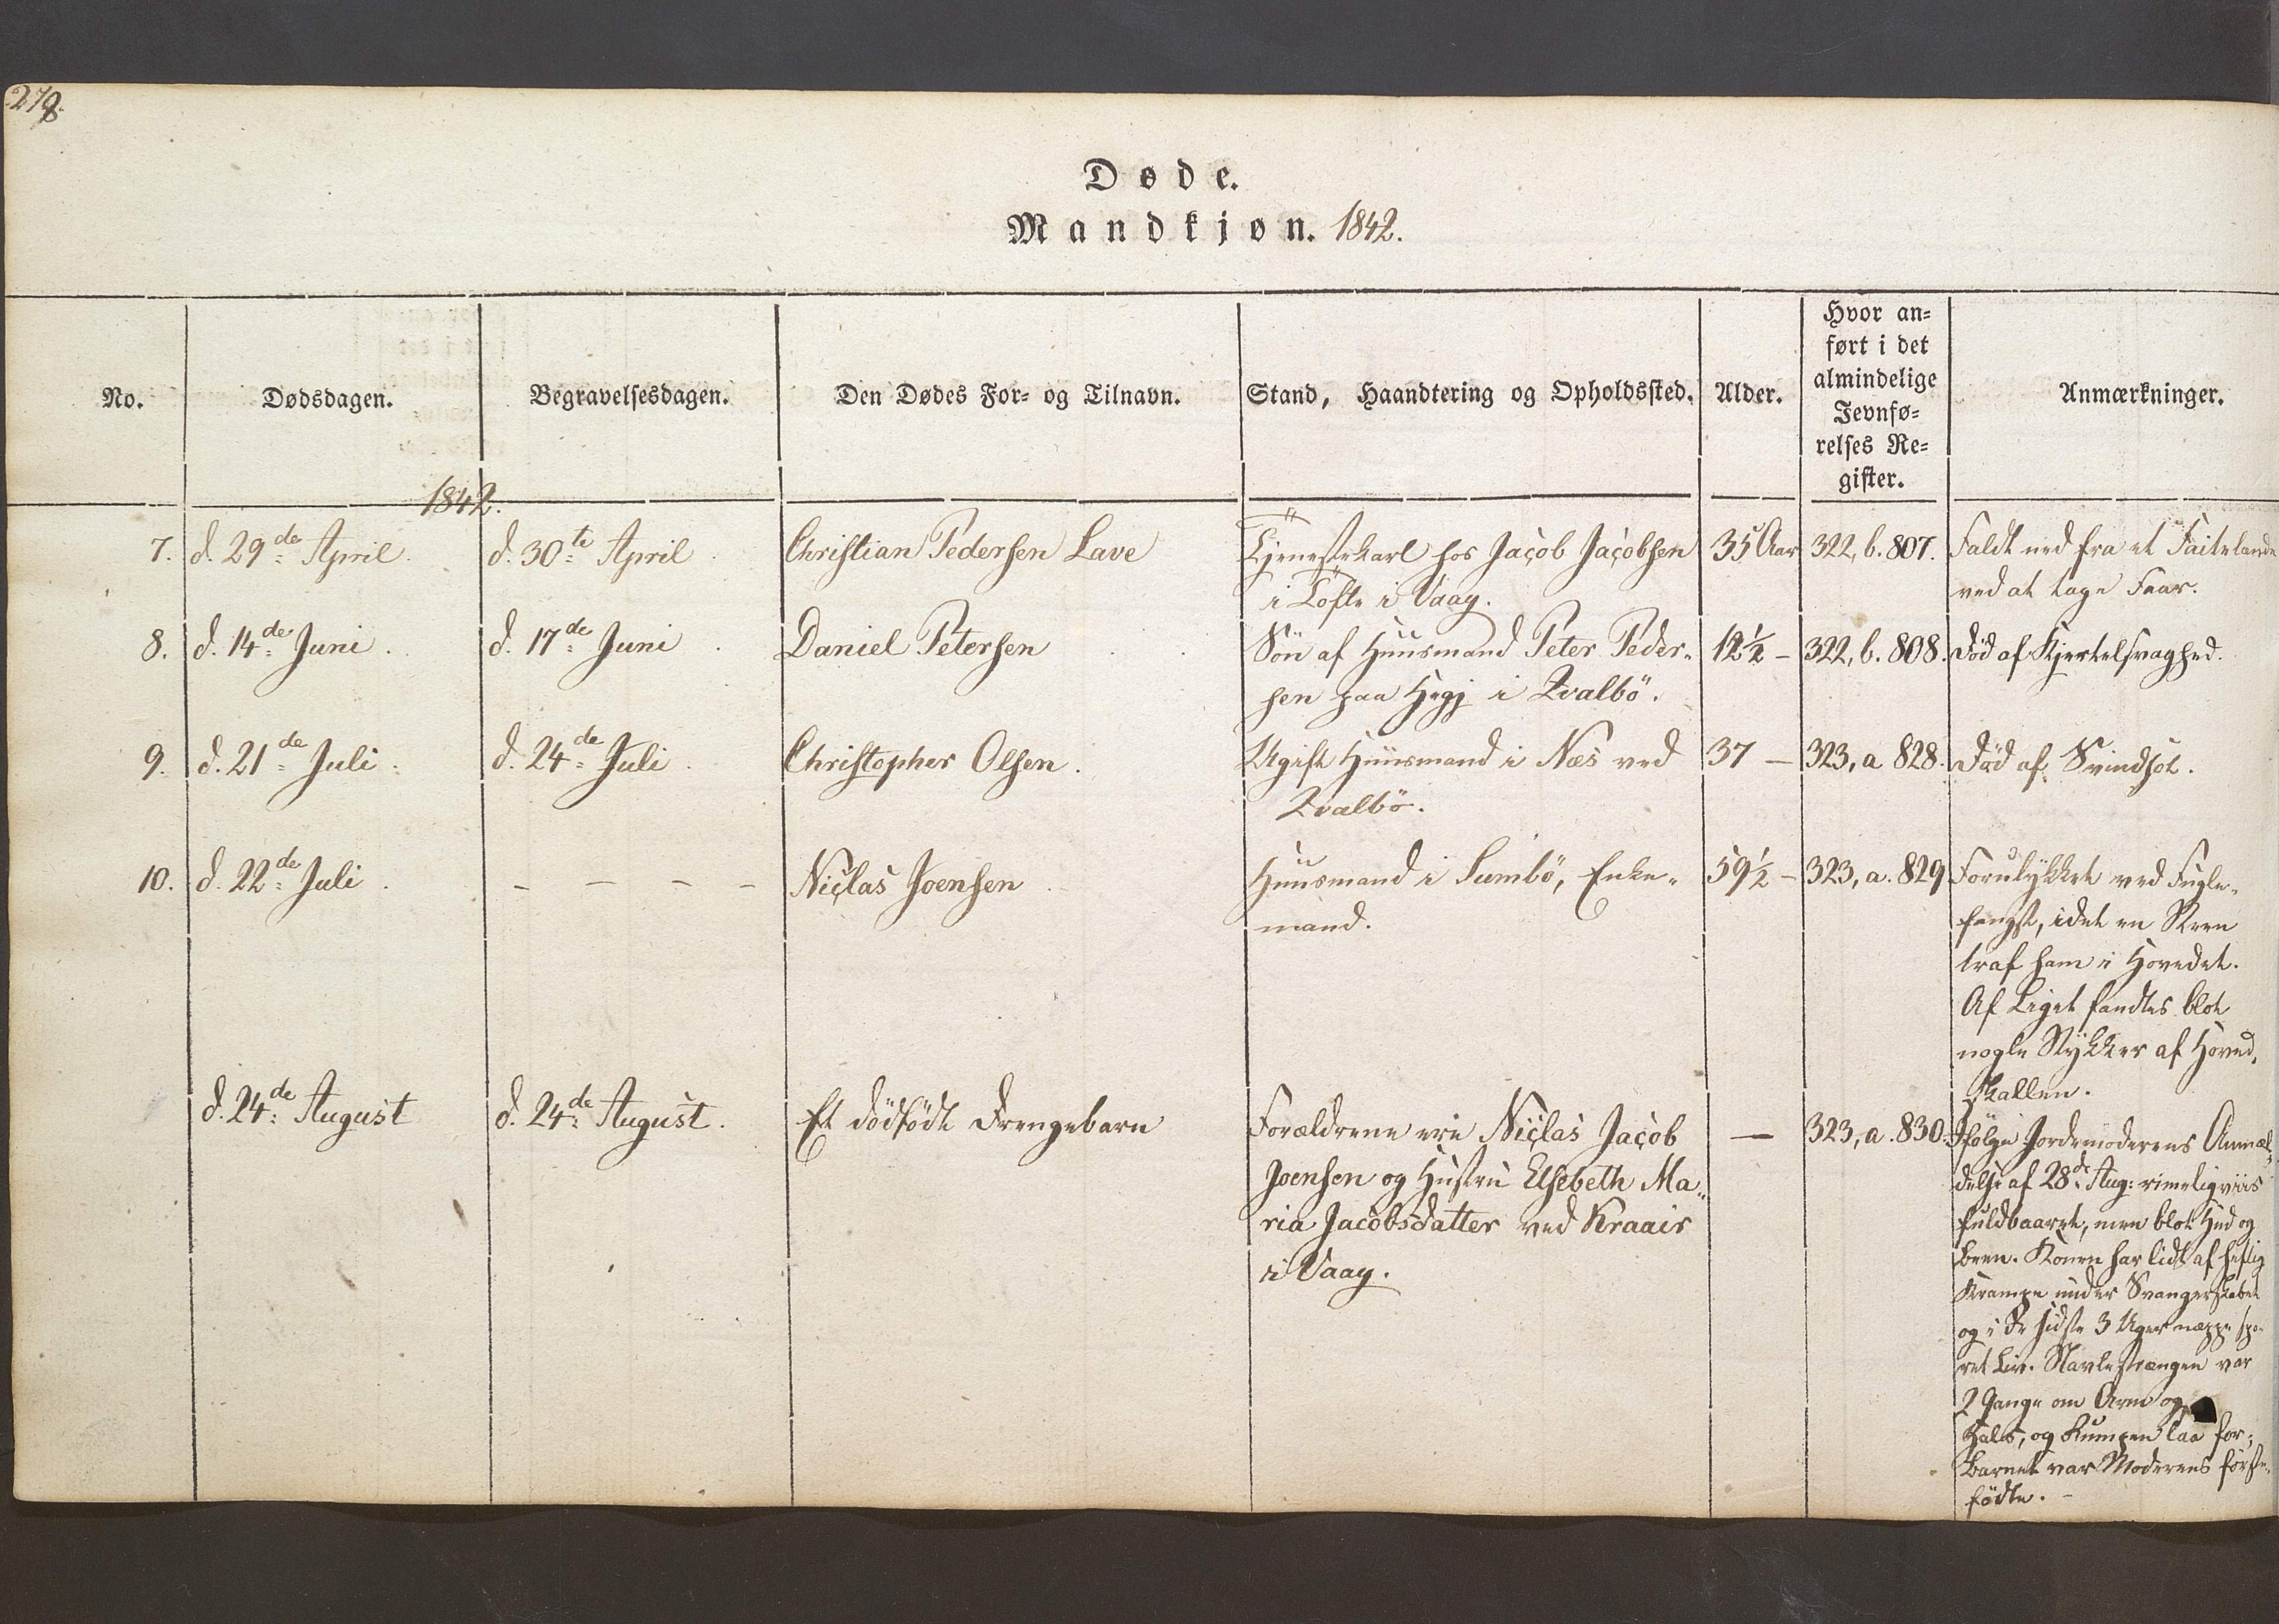 278.
Døde.
Mandkjøn. 1842.
No.
Dødsdagen.
Begravelsesdagen.
Den Dødes For- og Tilnavn.
Stand, Haandtering og Opholdssted.
Alder.
Hvor an=
ført i det
almindelige
Jevnfø=
relses Re=
gister.
Anmærkninger.
1842.
7. d. 29de April. d. 30te April. Christian Pedersen Lave Tjenestekarl hos Jacob Jacobsen 35 Aar 322, b. 807. Faldt ned fra et Faitelande
i Töfte i Vaag. ved at tage Faar.
8. d. 14de Juni. d. 17de Juni. Daniel Petersen Sön af Huusmand Peter Peder= 12½ - 322, b. 808. Död af Kjertelsvaghed.
sen paa Hegj i Qvalbö.
9. d. 21de Juli. d. 24de Juli. Christopher Olsen. Ugift Huusmand i Næs ved 37 - 323, a 828. Död af Svindsot.
Qvalbö.
10. d. 22de Juli. - - - - Niclas Joensen Huusmand i Sumbö, Enke= 59½ - 323, a. 829 Forulykket ved Fugle=
mand. fangst, idet en Steen
traf ham i Hovedet.
Af Liget fandtes blot
nogle Stykker af Hoved=
skallen.
d. 24de August d. 24de August. Et dödfödt Drengebarn Forældrene ere Niclas Jacob — 323, a. 830. Ifölge Jordemoderens Anmæl=
Joensen og Hustru Elsebeth Ma= delse af 28de Aug: rimeligviis
ria Jacobsdatter ved Kraair fuldbaaret, men blot Hud og
i Vaag. Been. Konen har lidt af heftig
Krampe under Svangerskabet
og i de sidste 3 Uger neppe spo=
ret Liv. Navlestrængen var
2 Gange om Arm og
Hals, og Rumpen laa for;
Barnet var Moderens förste=
födte.